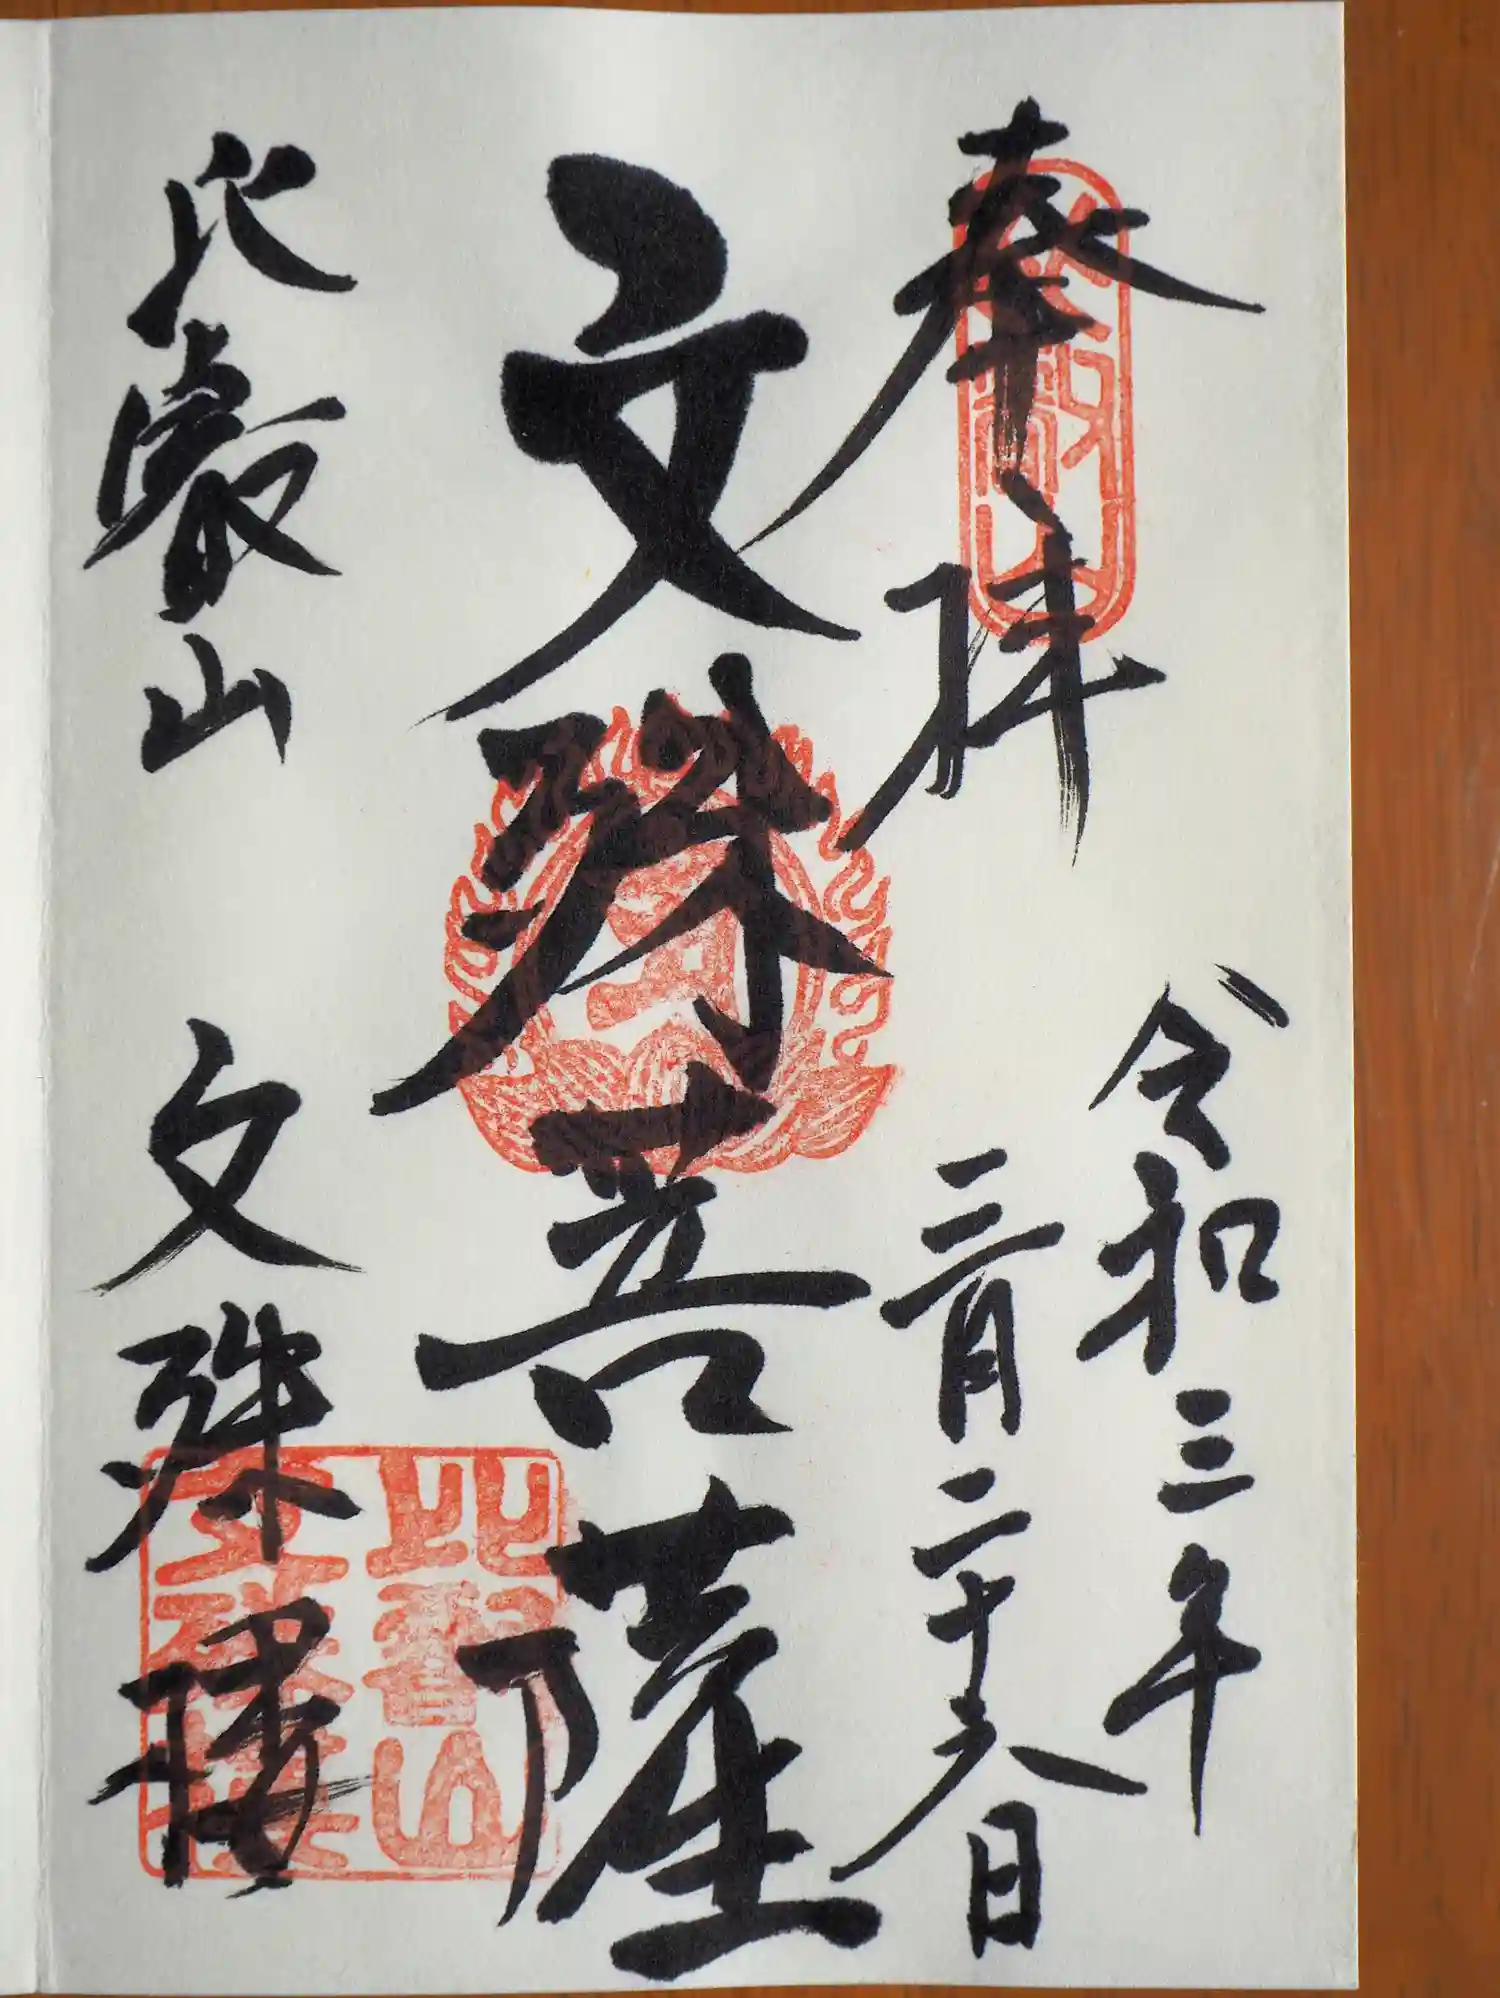 奉拝
比叡山
令和三年
三月二十六日
文殊菩薩
比叡山 文殊楼
比叡山
文殊楼